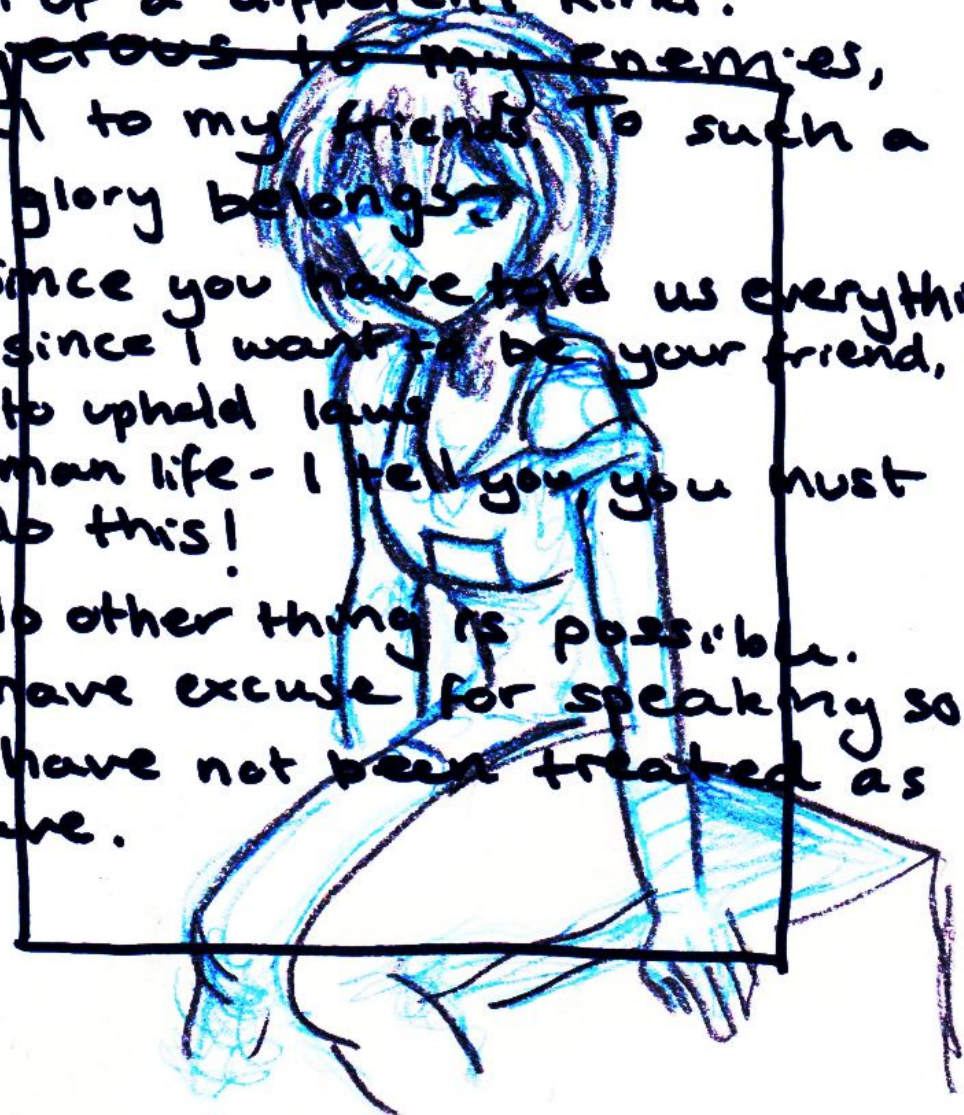 of a different kind.
erous to my enemies,
to my friends. To such a
glory belongs
since you have told us everythi
since I want to be your friend,
to uphold laws
man life - I tell you, you must
do this!
o other thing is possible.
have excuse for speaking so
have not been treated as
ave.